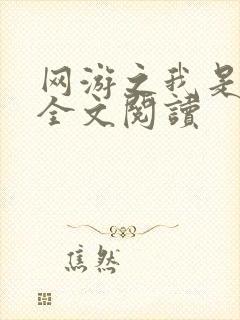 网游之我是
全文閱讀
焦然